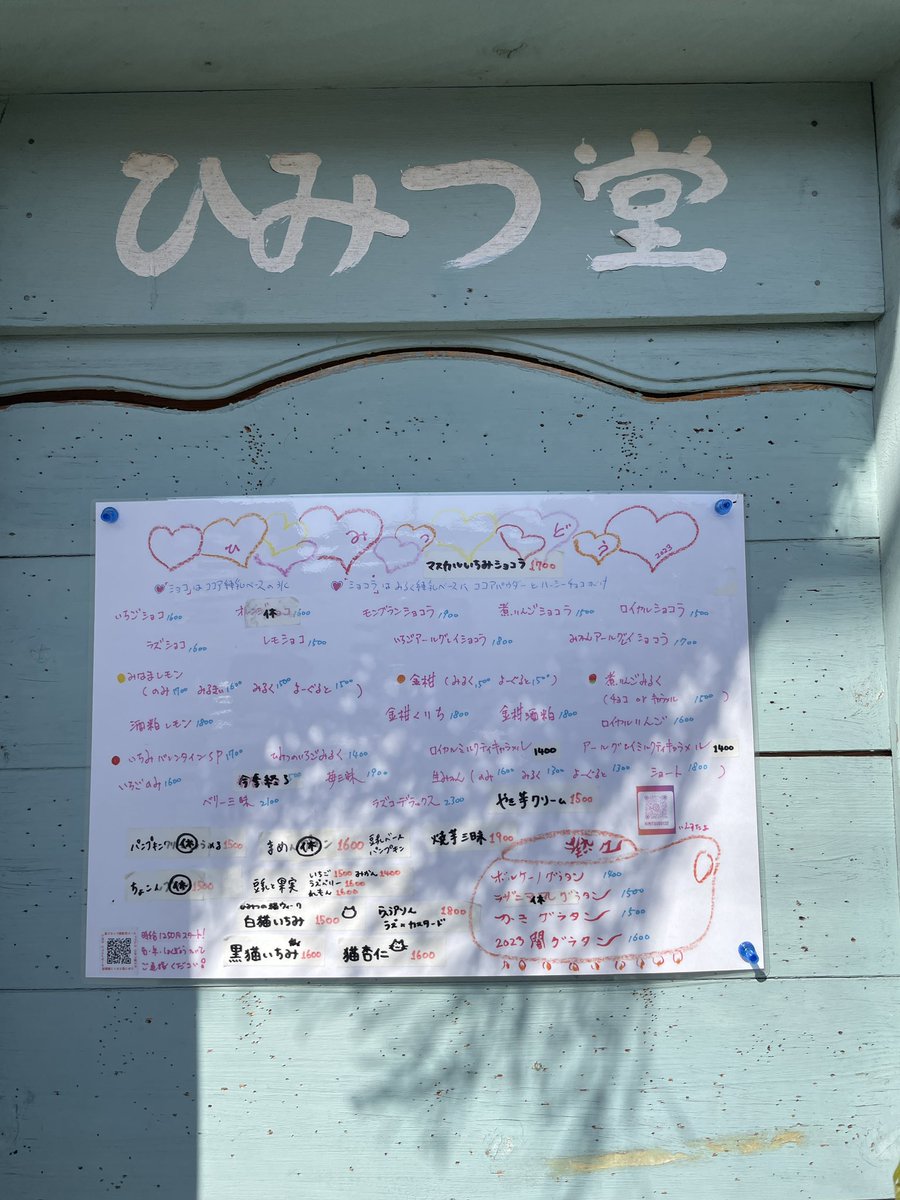 ひみつ堂
ひみつどう 2023
マスカルいちみショコラ 1700
「ショコ」はココア練乳ベースの氷
「ショコラ」はみるく練乳ベースに ココアパウダーと
いちごショコ 1600
休 1600
モンブランショコラ 1900
煮りんごショコラ 1500
ロイヤルショコラ 1500
ラズショコ 1600
レモショコ 1500
いちごアールグレイショコラ 1800
みかんアールグレイショコラ 1700
みなまレモン
(のみ 1700 みるきぃ 1600 みるく 1500 よーぐると 1500)
金柑 (みるく 1500 よーぐると 150)
煮りんごみるく
(チョコ or キャラメル 1500)
酒粕レモン 1800
金柑くりち 1800
金柑酒粕 1800
ロイヤルりんご 1600
いちみバレンタインSP 1700
ひみつのいちごみるく 1400
ロイヤルミルクティキャラメル 1400
アールグレイミルクティキャラメル 1400
いちごのみ 1600
今季終了
苺三昧 1900
生みかん (のみ 1600 みるく 1300 よーぐると 1300 ショート 1800)
ベリー三昧 2100
ラズコデラックス 2300
やき芋クリーム 1500
パンプキンクリ 休 うめる 1500
休 1600
豆乳ベース
パンプキン
焼芋三昧 1900
休 1500
豆乳と果実
いちご 1500 みかん 1400
ラズベリー 1600
れもん 1600
ひみつの猫ウィーク
白猫いちみ 1500
1800
ラズ×カスタード
黒猫いちみ 1600
猫杏仁 1600
ボルケーノグラタン 1800
休 グラタン 1500
グラタン 1500
2023 闇グラタン 1600
時給1250円スタート!
ご連絡ください!